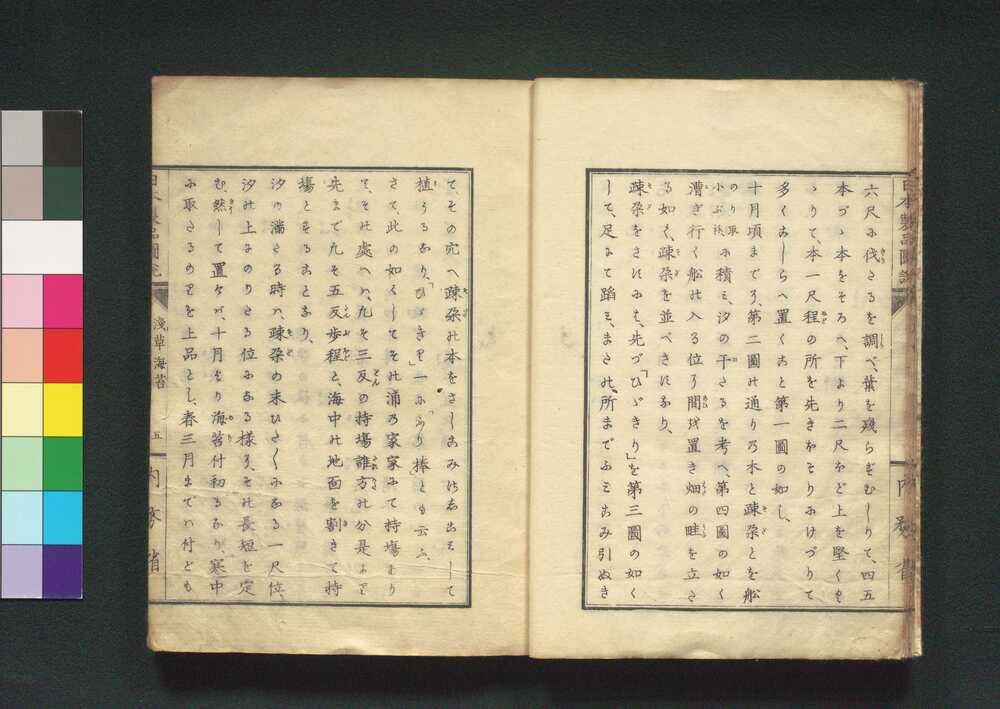 六尺に伐たるを調べ、葉を残らずむしりて、四五
本づゝ本をそろへ、下より二尺ほど上を堅くも
りて、本一尺程の所を先きほそりにけづりて
多くこしらへ置くこと第一圖の如し、
十月頃までに、第二圖の通りの木と疎朶とを船
に積ミ、汐の干たるを考へ、第四圖の如く
漕ぎ行く船の入る位に間を置き畑の畦を立た
る如く、疎朶を並べきになり、
疎朶をさすにハ、先づ「ひゞきり」を第三圖の如く
して、足にて蹈ミ、またの所までふミこみ引ぬき
て、その穴へ疎朶の本をさしこみ
植うるなり、「 一に「ふり棒」とも云ふ、
さて、此の如くしてその浦の家家にて持場あり
て、その處ハ、凡そ三反の持場誰方の分是より
先まで凡そ五反歩程と、海中の地面を割きて持
場とすることなり、
汐の満たる時ハ、疎朶の末ひたくになる一尺位、
汐の上にのりたる位になる様に、その長短を定
む、然して置けバ、十月より海苔付初るなり、寒中
に取たるものを上品とし、春三月までハ付ども
日本製品圖説
淺草海苔
五
内務省